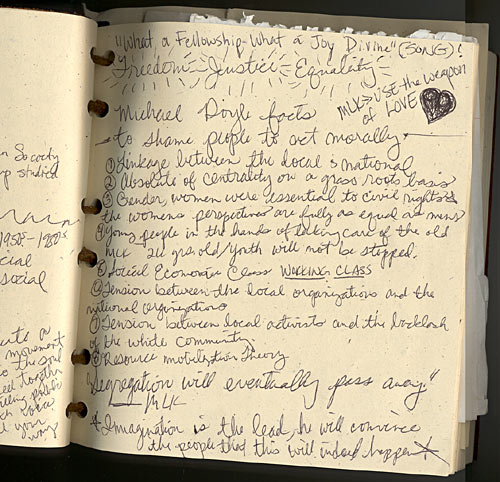 n Society
p studied
1950s-1980s
cial
social
ents a
movement
o the soul
eed together
public
voices
l your
way
"What a Fellowship-What a Joy Divine" (SONG)!
Freedom Justice Equality
MLK → USE the weapon
of LOVE
Michael Doyle facts
to shame people to act morally.
① Linkage between the local & national
② Absolute of centrality on a grass roots basis
③ Gender, women were essential to civil rights
the womens perspectives are fully as equal as mens
④ Young people in the hands of taking care of the old
MLK 24 yrs. old/youth will not be stopped.
⑤ Social Economic Class WORKING CLASS
⑥ Tension between the local organizations and the
national organizations
⑦ Tension between local activists and the backlash
of the white community
⑧ Resource mobilization Theory
"Segregation will eventually pass away"
MLK
Immagination is the lead, he will convince
the people that this will indeed happen